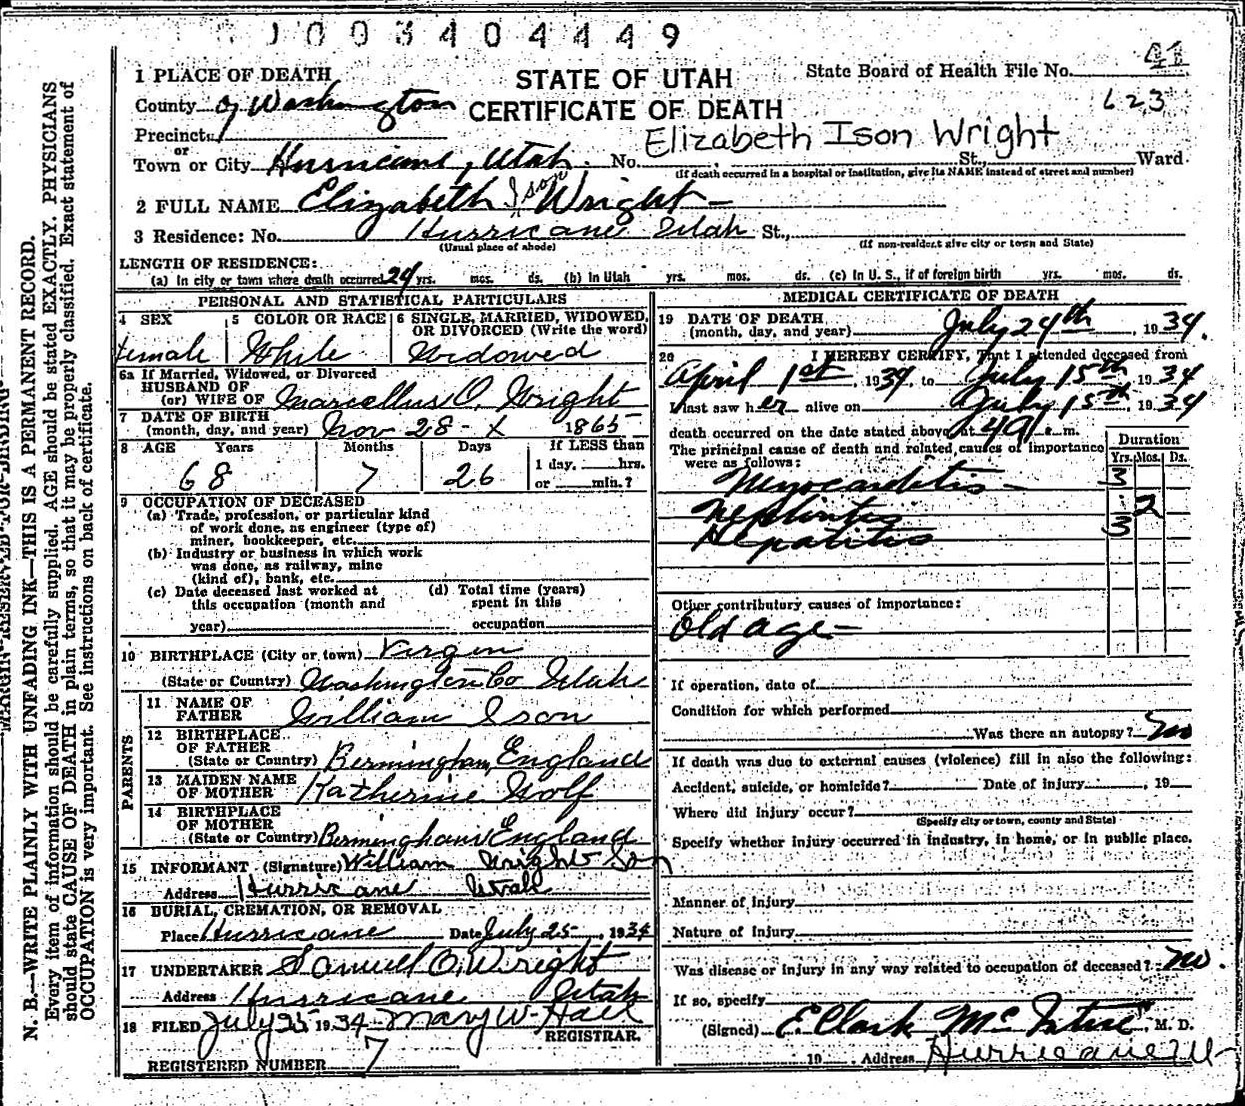 1003404449
41
1 PLACE OF DEATH
STATE OF UTAH
State Board of Health File No.
County of Washington
CERTIFICATE OF DEATH
623
Precinct
Elizabeth Ison Wright
or
Town or City Hurricane, Utah. No. St., Ward
(If death occurred in a hospital or institution, give its NAME instead of street and number)
2 FULL NAME Elizabeth Ison Wright
3 Residence: No. Hurricane Utah St.,
(Usual place of abode) (If non-resident give city or town and State)
LENGTH OF RESIDENCE:
(a) In city or town where death occurred 24 yrs. mos. ds. (b) In Utah yrs. mos. ds. (c) In U. S., if of foreign birth yrs. mos. ds.
PERSONAL AND STATISTICAL PARTICULARS
4 SEX 5 COLOR OR RACE 6 SINGLE, MARRIED, WIDOWED, OR DIVORCED (Write the word)
female White Widowed
6a If Married, Widowed, or Divorced
HUSBAND OF
(or) WIFE OF Marcellus O. Wright
7 DATE OF BIRTH
(month, day, and year) Nov 28 - 1865
8 AGE Years Months Days If LESS than
68 7 26 1 day, hrs.
or min.?
9 OCCUPATION OF DECEASED
(a) Trade, profession, or particular kind
of work done, as engineer (type of)
miner, bookkeeper, etc.
(b) Industry or business in which work
was done, as railway, mine
(kind of), bank, etc.
(c) Date deceased last worked at (d) Total time (years)
this occupation (month and spent in this
year) occupation
10 BIRTHPLACE (City or town) Virgin
(State or Country) Washington Co Utah
PARENTS
11 NAME OF
FATHER William Ison
12 BIRTHPLACE
OF FATHER
(State or Country) Bermingham, England
13 MAIDEN NAME
OF MOTHER Katherine Wolf
14 BIRTHPLACE
OF MOTHER
(State or Country) Bermingham England
15 INFORMANT (Signature) William Wright Son
Address Hurricane Utah
16 BURIAL, CREMATION, OR REMOVAL
Place Hurricane Date July 25 - , 1934
17 UNDERTAKER Samuel O. Wright
Address Hurricane Utah
18 FILED July 25 1934 Mary W. Hall
REGISTRAR.
REGISTERED NUMBER 7
MEDICAL CERTIFICATE OF DEATH
19 DATE OF DEATH
(month, day, and year) July 24th, 1934.
20 I HEREBY CERTIFY, That I attended deceased from
April 1st, 1934 to July 15th, 1934
I last saw her alive on July 15th, 1934
death occurred on the date stated above, at m.
The principal cause of death and related causes of importance
were as follows:
Duration
Yrs. Mos. Ds.
Myocarditis - 3
Nephritis 2
Hepatitis 3
Other contributory causes of importance:
Old age -
If operation, date of
Condition for which performed
Was there an autopsy? No
If death was due to external causes (violence) fill in also the following:
Accident, suicide, or homicide? Date of injury , 19
Where did injury occur?
(Specify city or town, county and State)
Specify whether injury occurred in industry, in home, or in public place.
Manner of injury
Nature of injury
Was disease or injury in any way related to occupation of deceased? No.
If so, specify
(Signed) E. Clark McIntire, M. D.
19 Address Hurricane U-
MARGIN RESERVED FOR BINDING
N. B.—WRITE PLAINLY WITH UNFADING INK—THIS IS A PERMANENT RECORD.
Every item of information should be carefully supplied. AGE should be stated EXACTLY. PHYSICIANS
should state CAUSE OF DEATH in plain terms, so that it may be properly classified. Exact statement of
OCCUPATION is very important. See instructions on back of certificate.